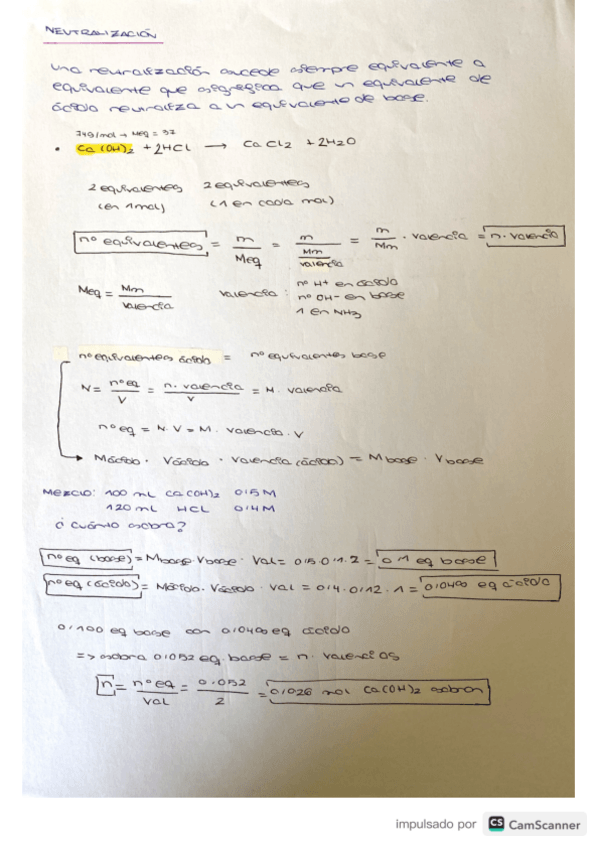 NEUTRALIZACIÓN
Una neutralización sucede siempre equivalente a
equivalente que significa que un equivalente de
ácido neutraliza a un equivalente de base.
74g/mol → Meq = 37
• Ca(OH)2 + 2HCl → CaCl2 + 2H2O
2 equivalentes 2 equivalentes
(en 1 mol) (1 en cada mol)
nº equivalentes = m/Meq = m/(Mm/valencia) = m/Mm · valencia = n · valencia
Meq = Mm/valencia valencia: nº H+ en ácido
nº OH- en base
1 en NH3
nº equivalentes ácido = nº equivalentes base
N = nº eq/V = n. valencia/V = M. valencia
nº eq = N.V = M. valencia. V
Mácido · Vácido · valencia (ácido) = Mbase · Vbase
Mezclo: 100 mL Ca(OH)2 0'5M
120 mL HCl 0'4M
¿Cuánto sobra?
nº eq (base) = Mbase.Vbase. Val = 0'5.0'1.2 = 0'1 eq base
nº eq (ácido) = Mácido. Vácido. val = 0'4.0'12.1 = 0'048 eq ácido
0'100 eq base con 0'048 eq ácido
=> sobra 0'052 eq. base = n. valencias
n = nº eq/val = 0'052/2 = 0'026 mol Ca(OH)2 sobran
impulsado por CS CamScanner